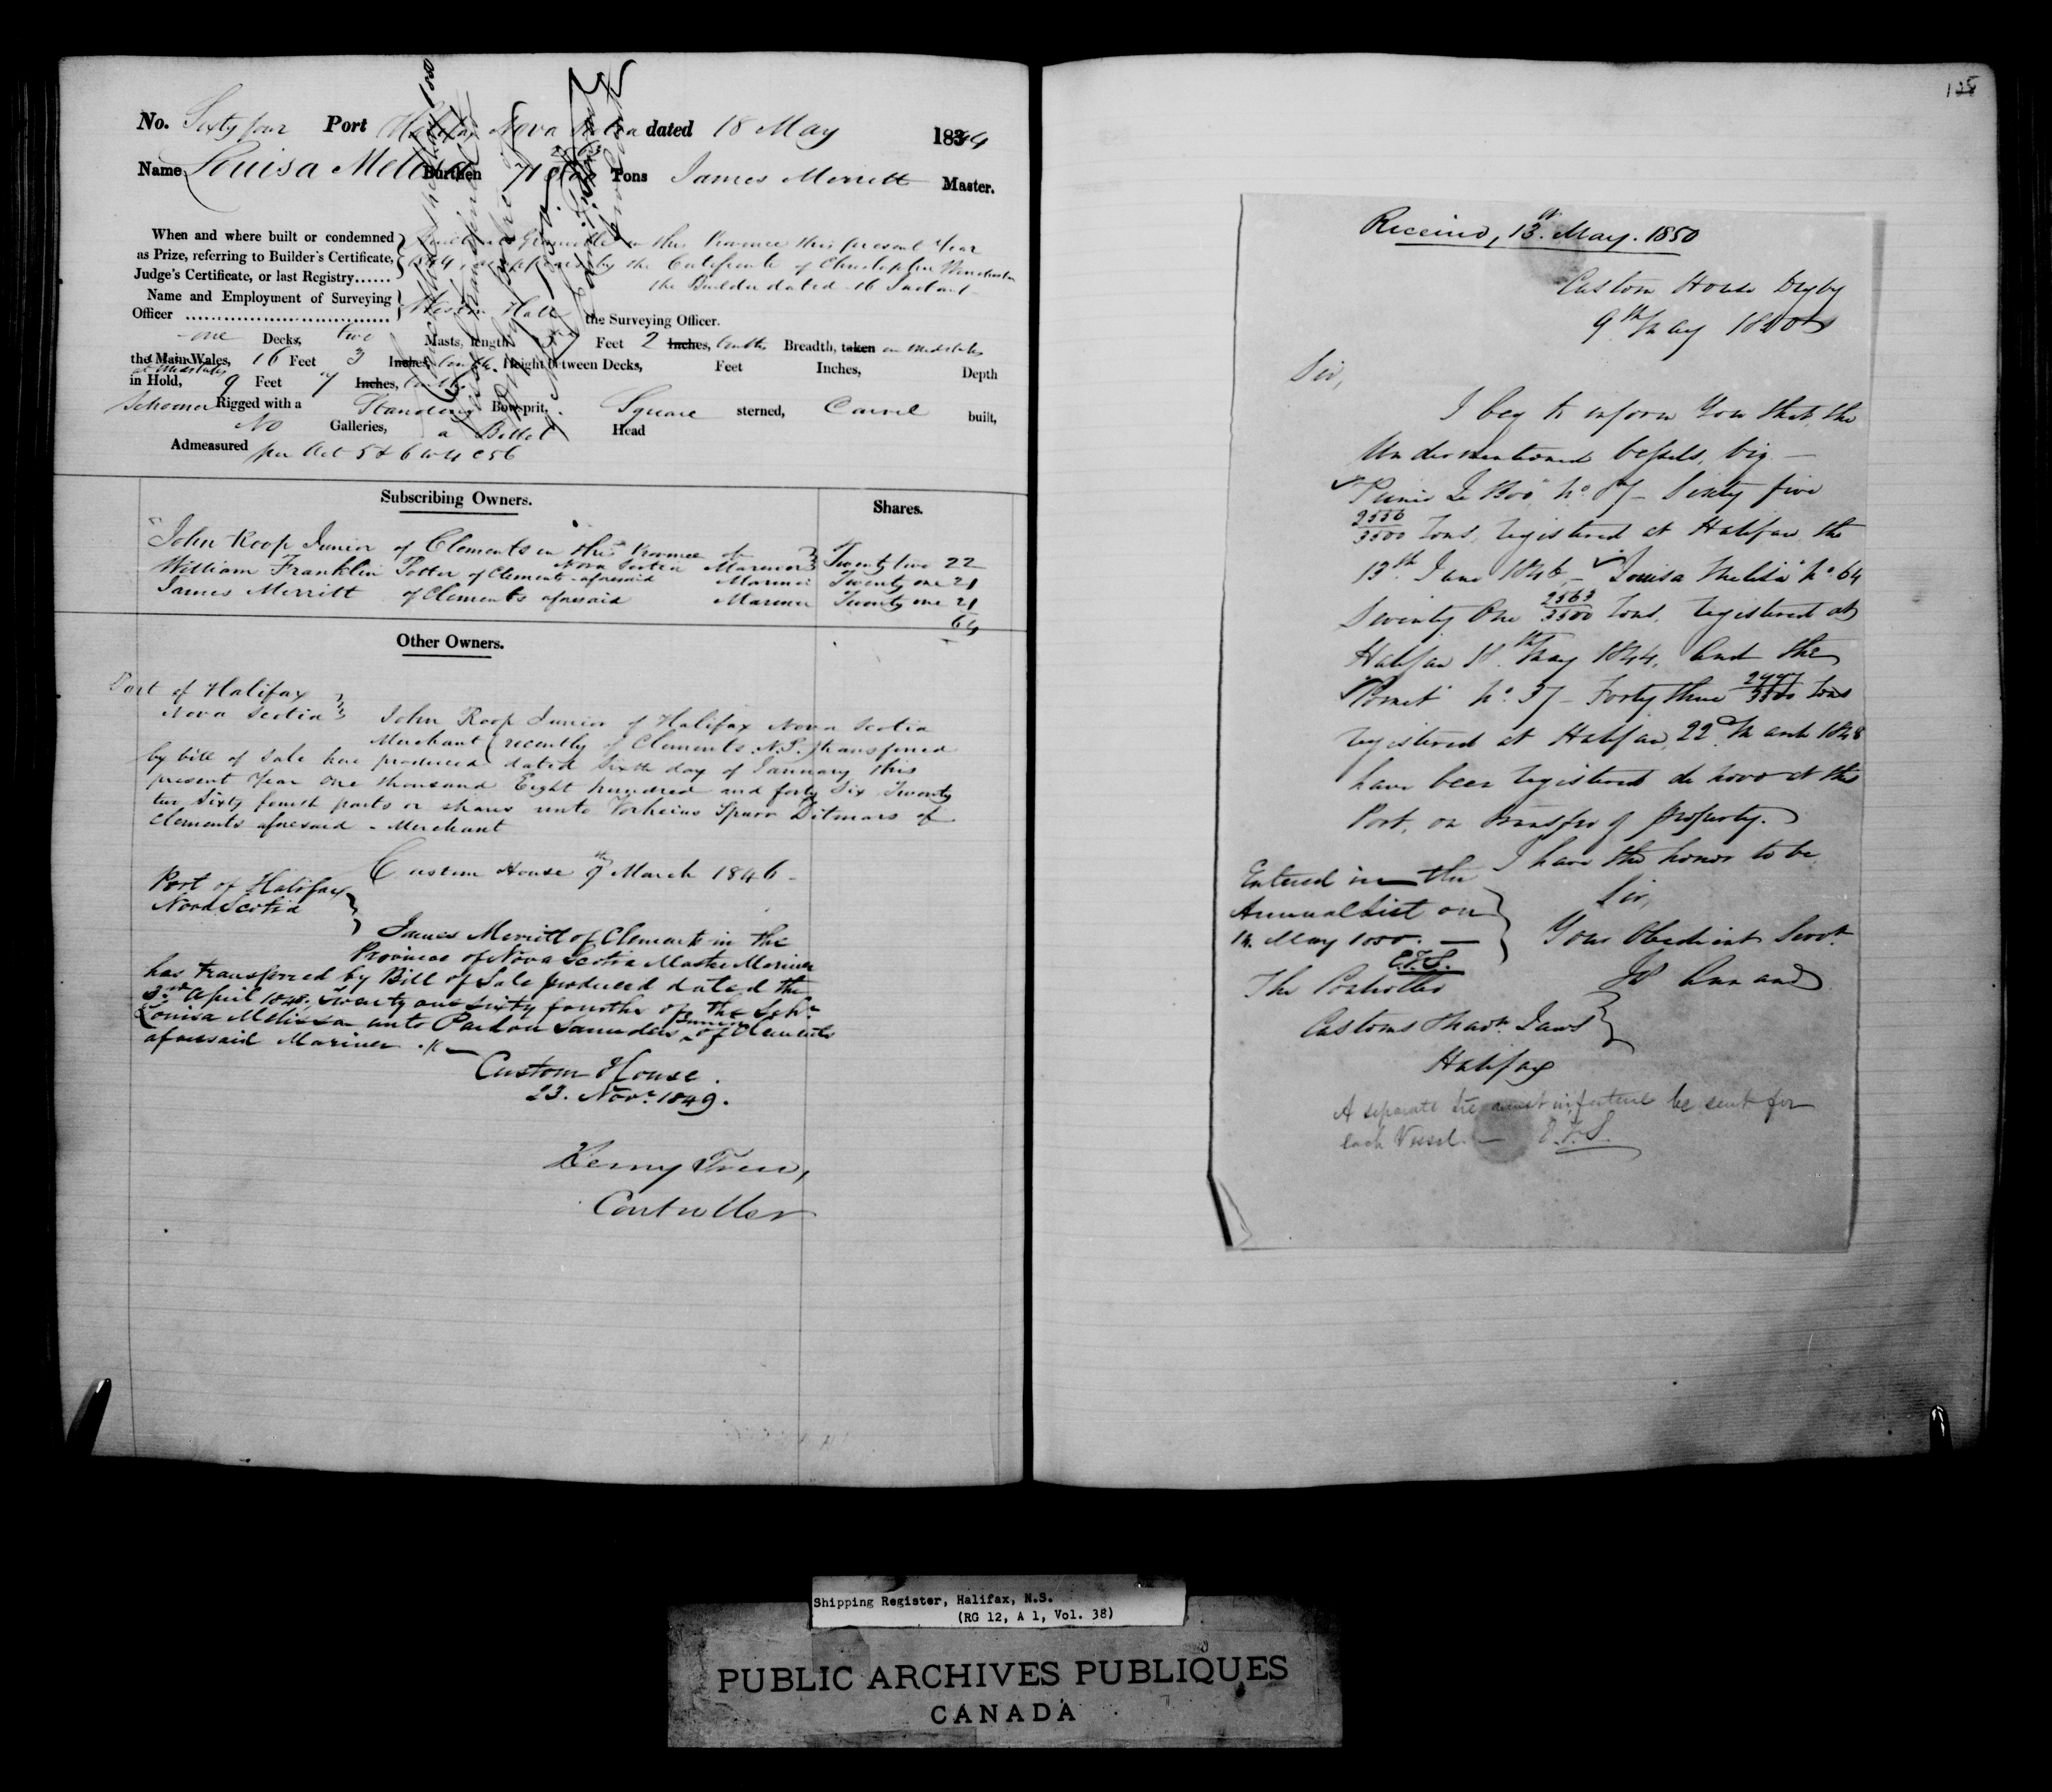 No. Sixty four Port Halifax Nova Scotia dated 18 May 1844
Name Louisa Melissa Burthen 71 2563/3500 Tons James Merritt Master.
When and where built or condemned
as Prize, referring to Builder's Certificate,
Judge's Certificate, or last Registry......
Built at Granville in this Province this present Year
1844 as appears by the Certificate of Christopher Winchester
the Builder dated 16 Instant
Name and Employment of Surveying
Officer ................................
Hall the Surveying Officer.
one Decks, two Masts, length Feet 2 Inches, tenths Breadth, taken in midships
the Main Wales, 16 Feet 3 Inches, tenths. Height between Decks, Feet Inches, Depth
at Midships
in Hold, 9 Feet 7 Inches, tenths
Schooner Rigged with a Standing Bowsprit, Square sterned, Carvel built,
No Galleries, a Billet Head
Admeasured per Act 5 & 6 W 4 C 56
Subscribing Owners.
Shares.
John Roop Junior of Clements in this Province of
Nova Scotia Mariner Twenty two 22
William Franklin Potter of Clements aforesaid Mariner Twenty one 21
James Merritt of Clements aforesaid Mariner Twenty one 21
64
Other Owners.
Port of Halifax
Nova Scotia
John Roop Junior of Halifax Nova Scotia
Merchant (recently of Clements N.S.) transferred
by bill of Sale here produced dated Sixth day of January this
present Year One thousand Eight hundred and forty Six Twenty
two Sixty fourth parts or shares unto Vorheius Spurr Ditmars of
Clements aforesaid - Merchant
Custom House 9th March 1846 -
Port of Halifax
Nova Scotia
James Merritt of Clements in the
Province of Nova Scotia Master Mariner
has transferred by Bill of Sale produced dated the
3rd April 1848. Twenty one Sixty fourths of the Schr
Louisa Melissa unto Pardon Saunders Junior of Clements
aforesaid Mariner.
Custom House.
23. Novr. 1849.
Henry Trew,
Controller
Received, 13th May. 1850
Custom House Digby
9th May 1850
Sir,
I beg to inform You that, the
Undermentioned Vessels, viz -
"Prince Le Boo" No. 87 - Sixty five
2556/3500 tons, registered at Halifax the
13th June 1846, - "Louisa Melisa" No. 64
Seventy One 2563/3500 tons, registered at
Halifax 18th May 1844, and the
"Comet" No. 37 - Forty three 2497/3500 tons
registered at Halifax, 22nd March 1848
have been registered de novo at this
Port, on transfer of property.
I have the honor to be
Sir,
Your Obedient Servt.
Entered in the
Annual List on
14. May 1850. -
E.T.S.
The Controller
Customs & Navn. Laws
Halifax
A separate Lre must in future be sent for
each Vessel. - E.T.S.
Shipping Register, Halifax, N.S.
(RG 12, A 1, Vol. 38)
PUBLIC ARCHIVES PUBLIQUES
CANADA